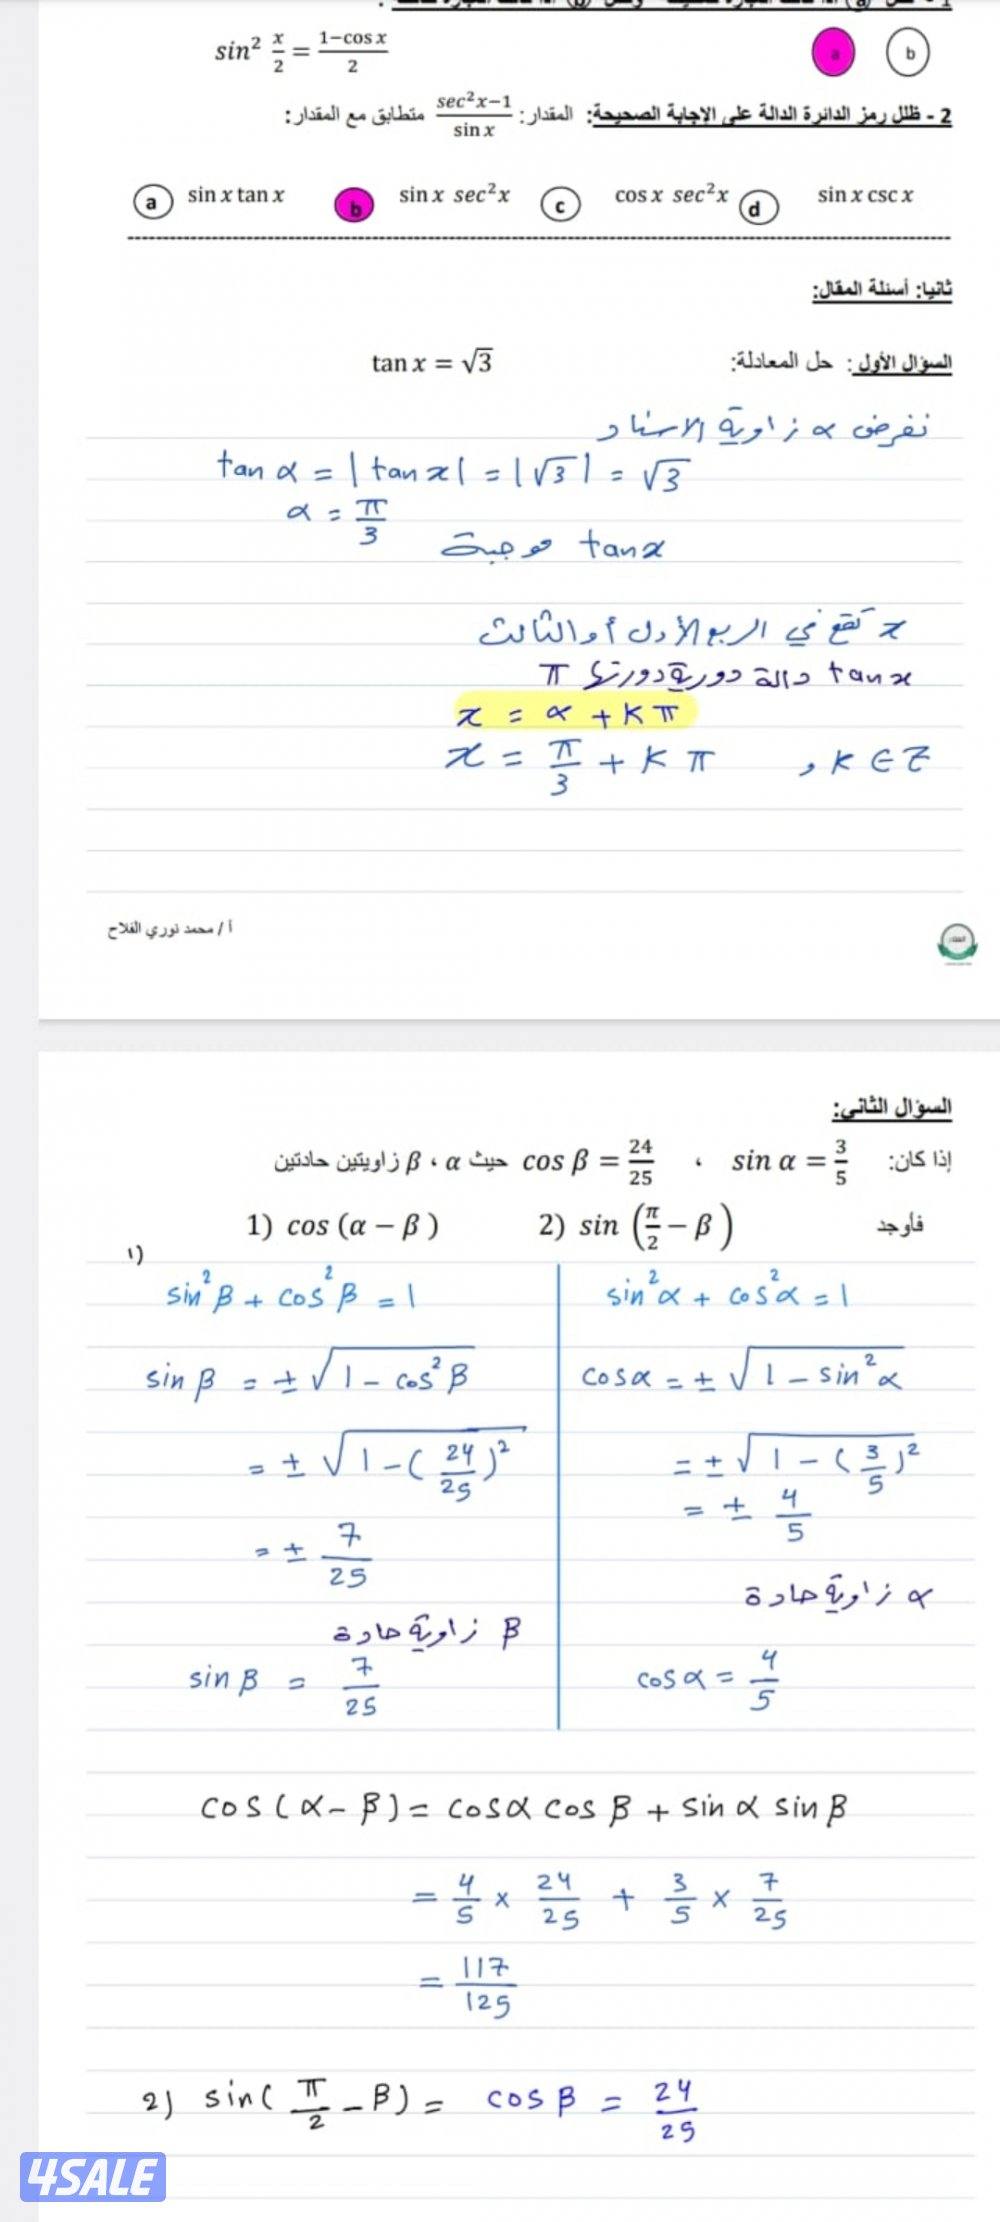 sin² x/2 = (1−cos x)/2 a b
2 - ظلل رمز الدائرة الدالة على الإجابة الصحيحة: المقدار: (sec²x−1)/(sin x) متطابق مع المقدار:
a sin x tan x b sin x sec²x c cos x sec²x d sin x csc x
ثانيا: أسئلة المقال:
السؤال الأول : حل المعادلة: tan x = √3
نفرض α زاوية الاسناد
tan α = |tan x| = |√3| = √3
α = π/3
tan x موجبة
x تقع في الربع الأول أو الثالث
tan x دالة دورية دورتها π
x = α + k π
x = π/3 + k π , k ∈ Z
أ / محمد نوري الفلاح
السؤال الثاني:
إذا كان: sin α = 3/5 ، cos β = 24/25 حيث α ، β زاويتين حادتين
فأوجد 1) cos (α − β) 2) sin (π/2 − β)
1)
sin²β + cos²β = 1 sin²α + cos²α = 1
sin β = ± √(1 − cos²β) cos α = ± √(1 − sin²α)
= ± √(1 − (24/25)²) = ± √(1 − (3/5)²)
= ± 7/25 = ± 4/5
β زاوية حادة α زاوية حادة
sin β = 7/25 cos α = 4/5
cos (α − β) = cos α cos β + sin α sin β
= 4/5 × 24/25 + 3/5 × 7/25
= 117/125
2) sin (π/2 − β) = cos β = 24/25
4SALE